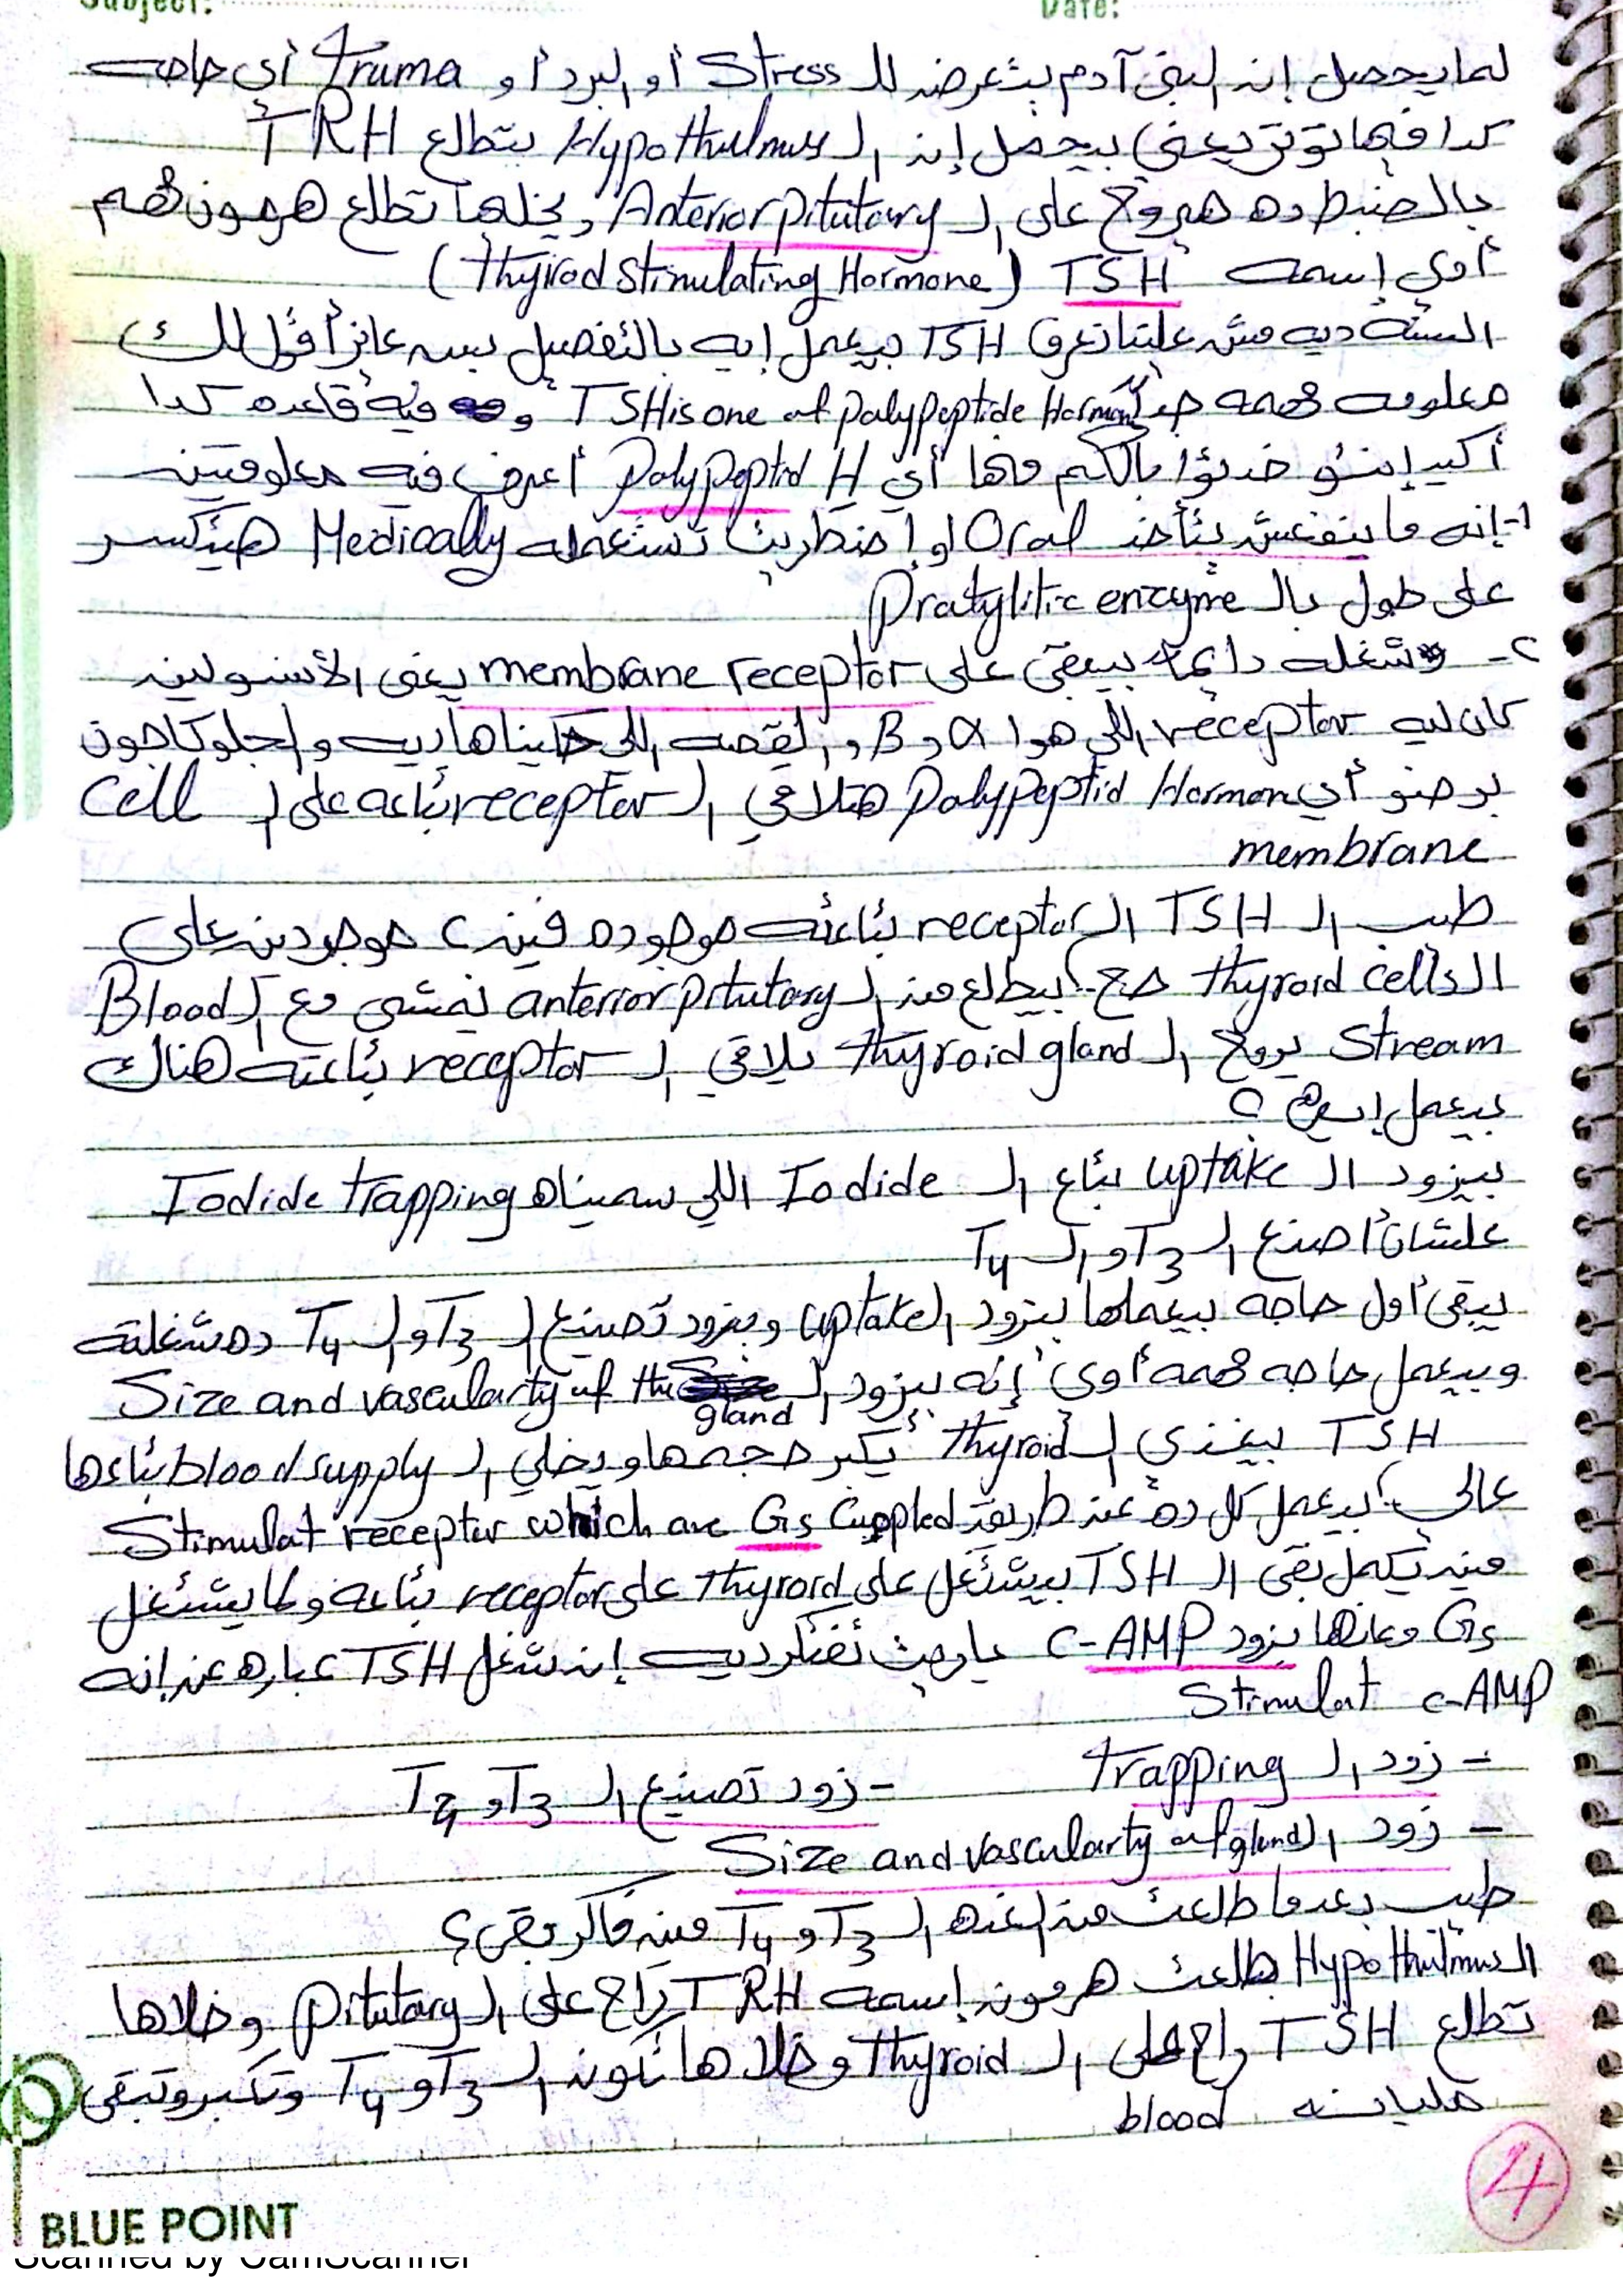 Subject: Date:
لما يحصل إن البني آدم بيتعرض للـ Stress أو البرد أو truma أي حاجه
كدا فيها توتر يعني بيحصل إن الـ Hypothulmus بتطلع TRH
بالضبط ده هيروح على الـ Anterior pitutary ويخليها تطلع هرمون مهم
أوي إسمه TSH (thyriod stimulating Hormone)
السنة ديه مش علينا نعرف TSH بيعمل إيه بالتفصيل بس عايز أقول لك
معلومه مهمه جداً TSH is one of polypeptide Hormon و فيه قاعده كدا
أكيد إنتو خدتوا بالكم منها أي Polypeptid H أعرف فيه معلومتين
1- إنه ما ينفعش يتأخد Oral لو إضطريت تستعمله Medically هيتكسر
على طول بالـ Protylitic enzyme
٢- شغله دايما بيبقى على membrane receptor يعني الأنسولين
كان ليه receptor اللي هوا α و B والقصه اللي حكيناها ديه والجلوكاجون
برضو أي Polypeptid Hormon هتلاقي الـ receptor بتاعه على الـ Cell
membrane
طب الـ TSH الـ receptor بتاعته موجوده فين؟ موجودين على
الـ thyroid cells صح؟ بيطلع من الـ anterior pitutary يمشي مع الـ Blood
Stream يروح الـ thyroid gland يلاقي الـ receptor بتاعته هناك
بيعمل إيه؟
بيزود الـ uptake بتاع الـ Iodide اللي سميناه Iodide trapping
علشان أصنع الـ T3 والـ T4
يبقى أول حاجه بيعملها بيزود الـ uptake وبيزود تصنيع الـ T3 والـ T4 ده شغلته
وبيعمل حاجه مهمه أوي إنه بيزود الـ Size and vascularty of the gland
TSH بيغذي الـ thyroid يكبر حجمها ويخلي الـ blood supply بتاعها
عالي؟ بيعمل كل ده عن طريق Stimulat receptor which are Gs Cuppled
مين يكمل بقى الـ TSH بيشتغل على thyroid على receptor بتاعه ولما يشتغل
Gs معناها يزود c-AMP عاوزك تفتكر ديه إن شغل TSH عباره عن إنه
Stimulat c-AMP
- زود الـ trapping - زود تصنيع الـ T3 و T4
- زود الـ Size and vascularty of gland
طيب بعد ما طلعت من عندها الـ T3 و T4 مين فاكر بقى؟
الـ Hypothulmus طلعت هرمون إسمه TRH راح على الـ pitutary وخلاها
تطلع TSH راح على الـ thyroid وخلاها تكون الـ T3 و T4 وتكبر وتبقى
مليانه blood
4
BLUE POINT
Scanned by CamScanner